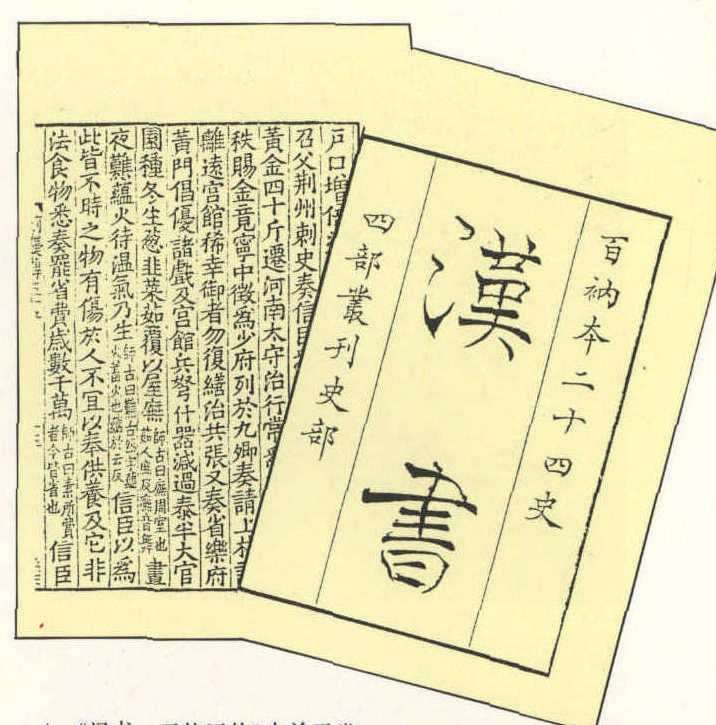 百衲本二十四史
漢書
四部叢刊史部
戶口增倍
召父荆州刺史奏信臣
黃金四十斤遷河南太守治行常
秩賜金竟寧中徵為少府列於九卿奏請上林
離遠宮館稀幸御者勿復繕治共張又奏省樂府
黃門倡優諸戲及宮館兵弩什器減過泰半大官
園種冬生葱韭菜茹覆以屋廡師古曰廡周室也茹人庶反廡音舞晝
夜難蘊火待溫氣乃生信臣以為
此皆不時之物有傷於人不宜以奉供養及它非
法食物悉奏罷省費歲數千萬師古曰素所費者今皆省也信臣